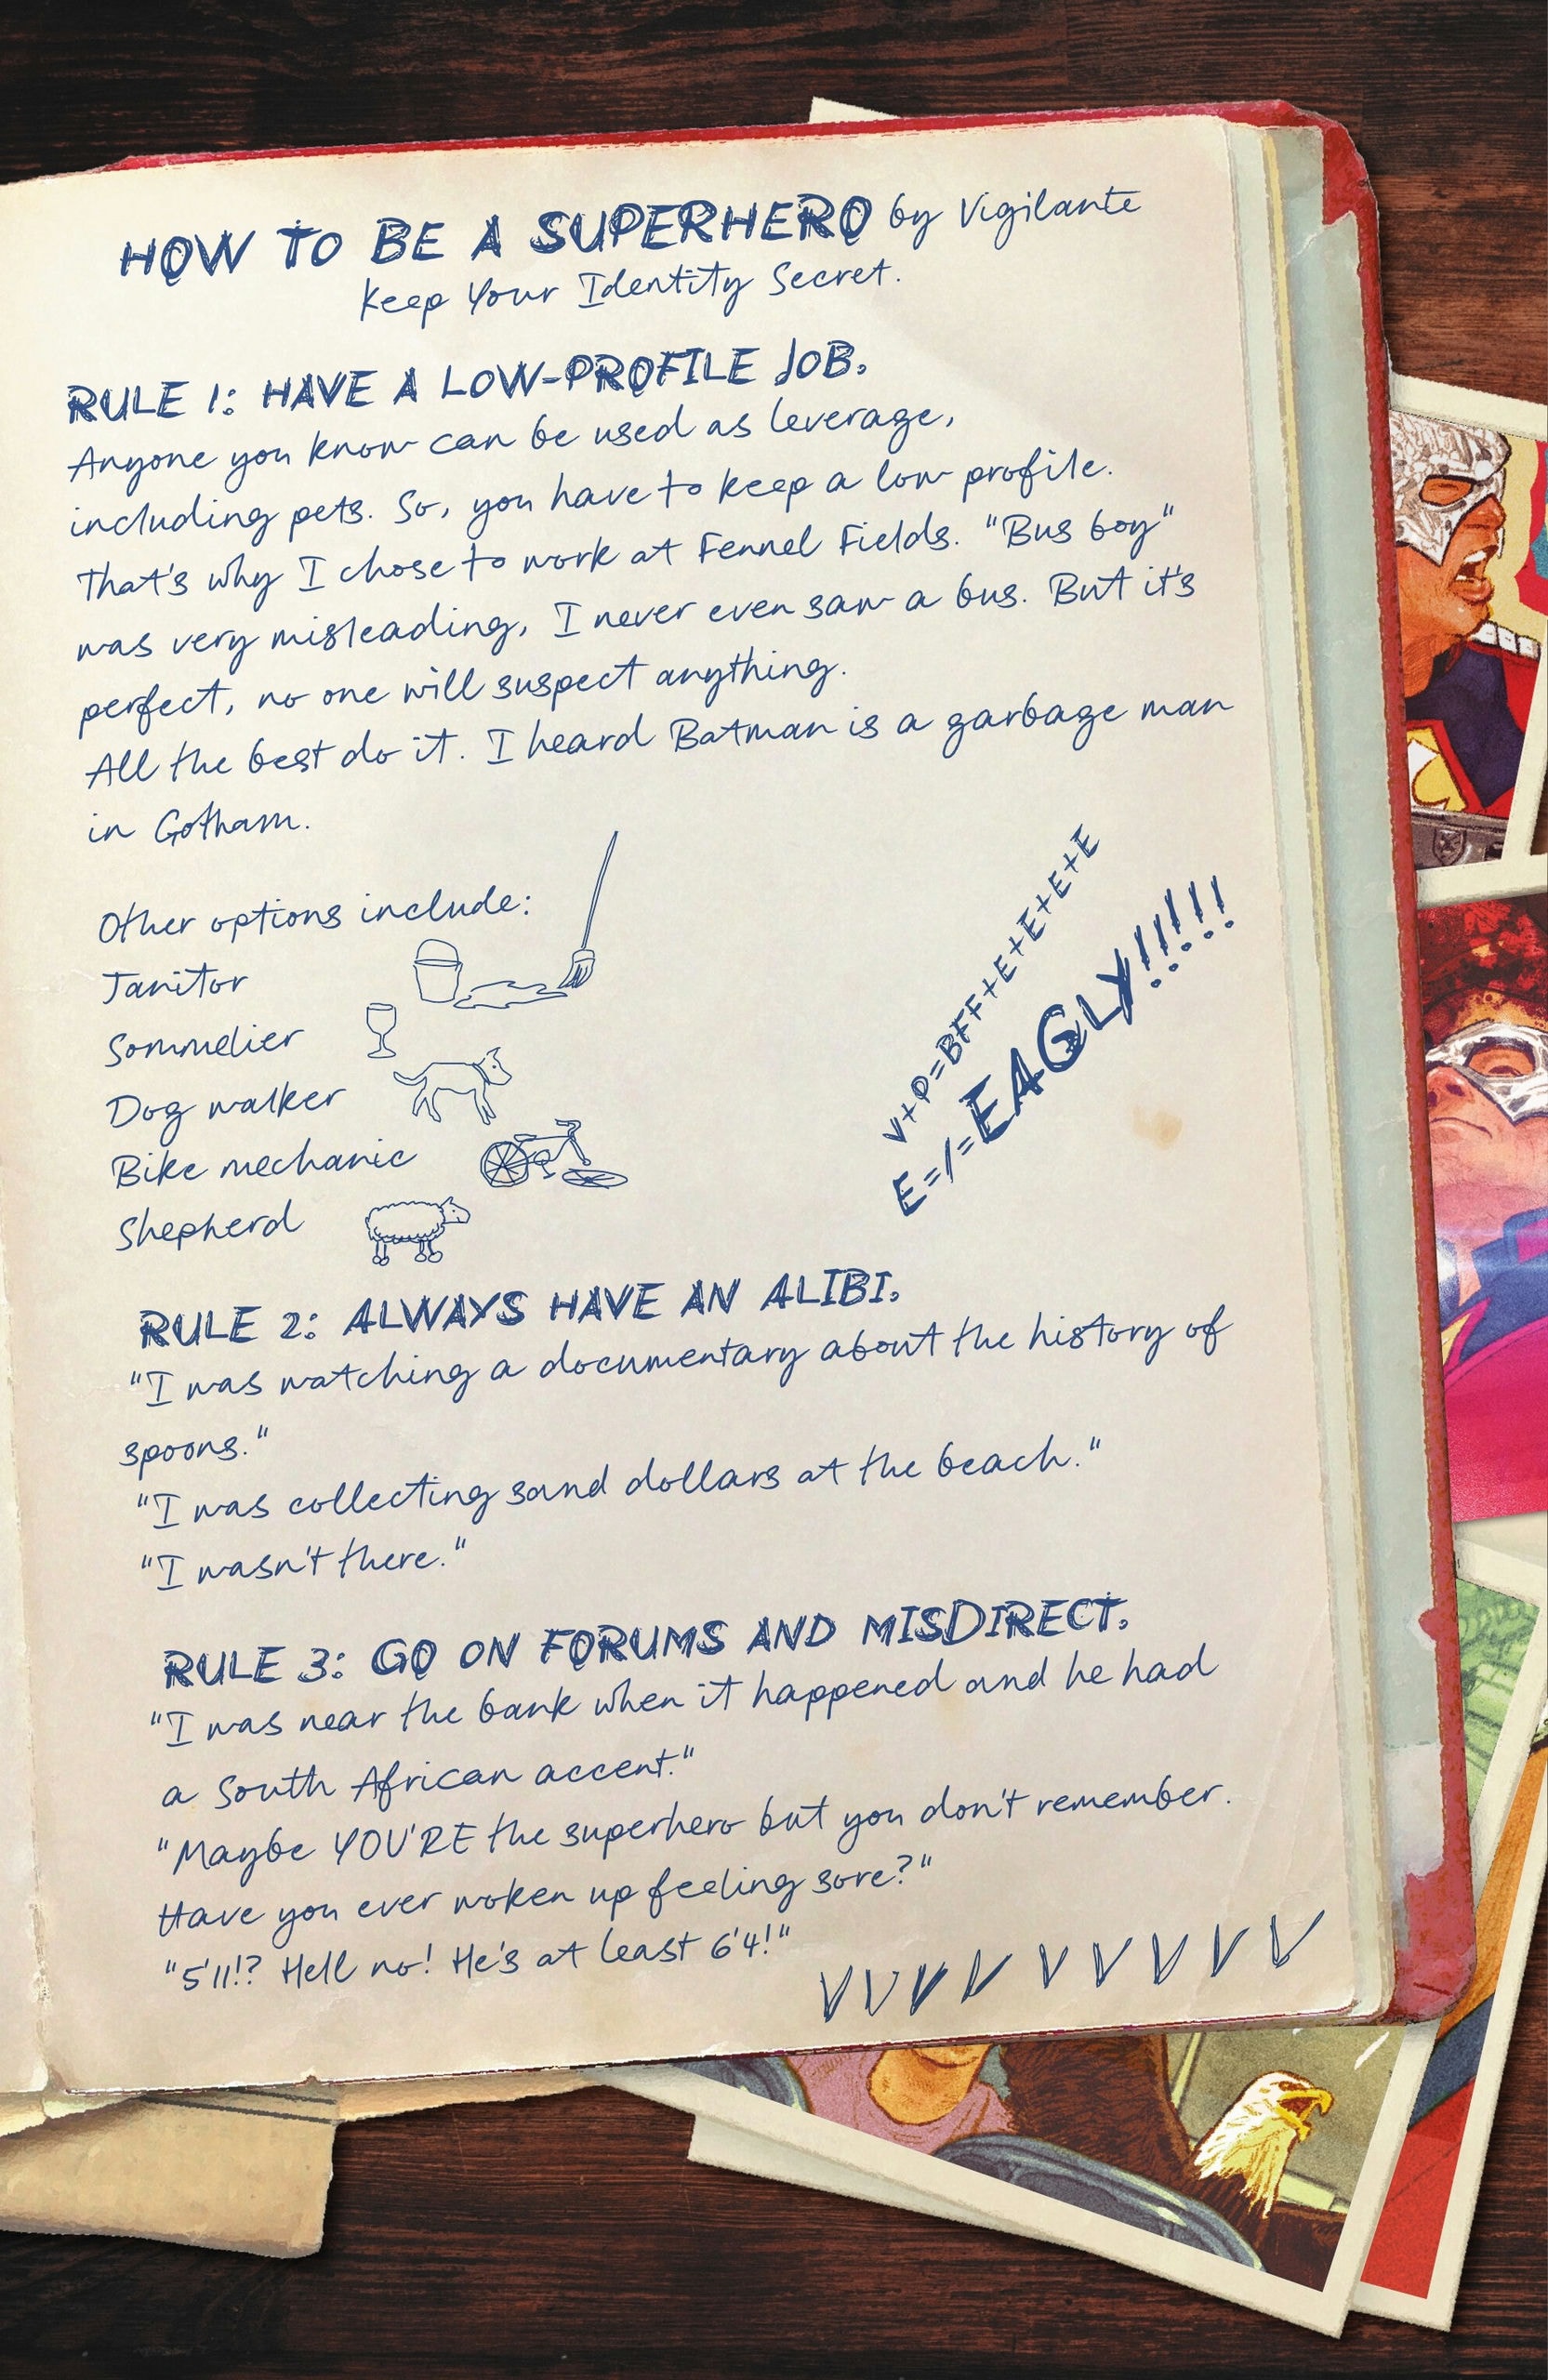 HOW TO BE A SUPERHERO by Vigilante
Keep Your Identity Secret.
RULE 1: HAVE A LOW-PROFILE JOB.
Anyone you know can be used as leverage,
including pets. So, you have to keep a low profile.
That's why I chose to work at Fennel Fields. "Bus boy"
was very misleading, I never even saw a bus. But it's
perfect, no one will suspect anything.
All the best do it. I heard Batman is a garbage man
in Gotham.
Other options include:
Janitor
Sommelier
Dog walker
Bike mechanic
Shepherd
V+P=BFF+E+E+E+E+E
E=/=EAGLY!!!!!
RULE 2: ALWAYS HAVE AN ALIBI.
"I was watching a documentary about the history of
spoons."
"I was collecting sand dollars at the beach."
"I wasn't there."
RULE 3: GO ON FORUMS AND MISDIRECT.
"I was near the bank when it happened and he had
a South African accent."
"Maybe YOU'RE the superhero but you don't remember.
Have you ever woken up feeling sore?"
"5'11!? Hell no! He's at least 6'4!"
V V V V V V V V V